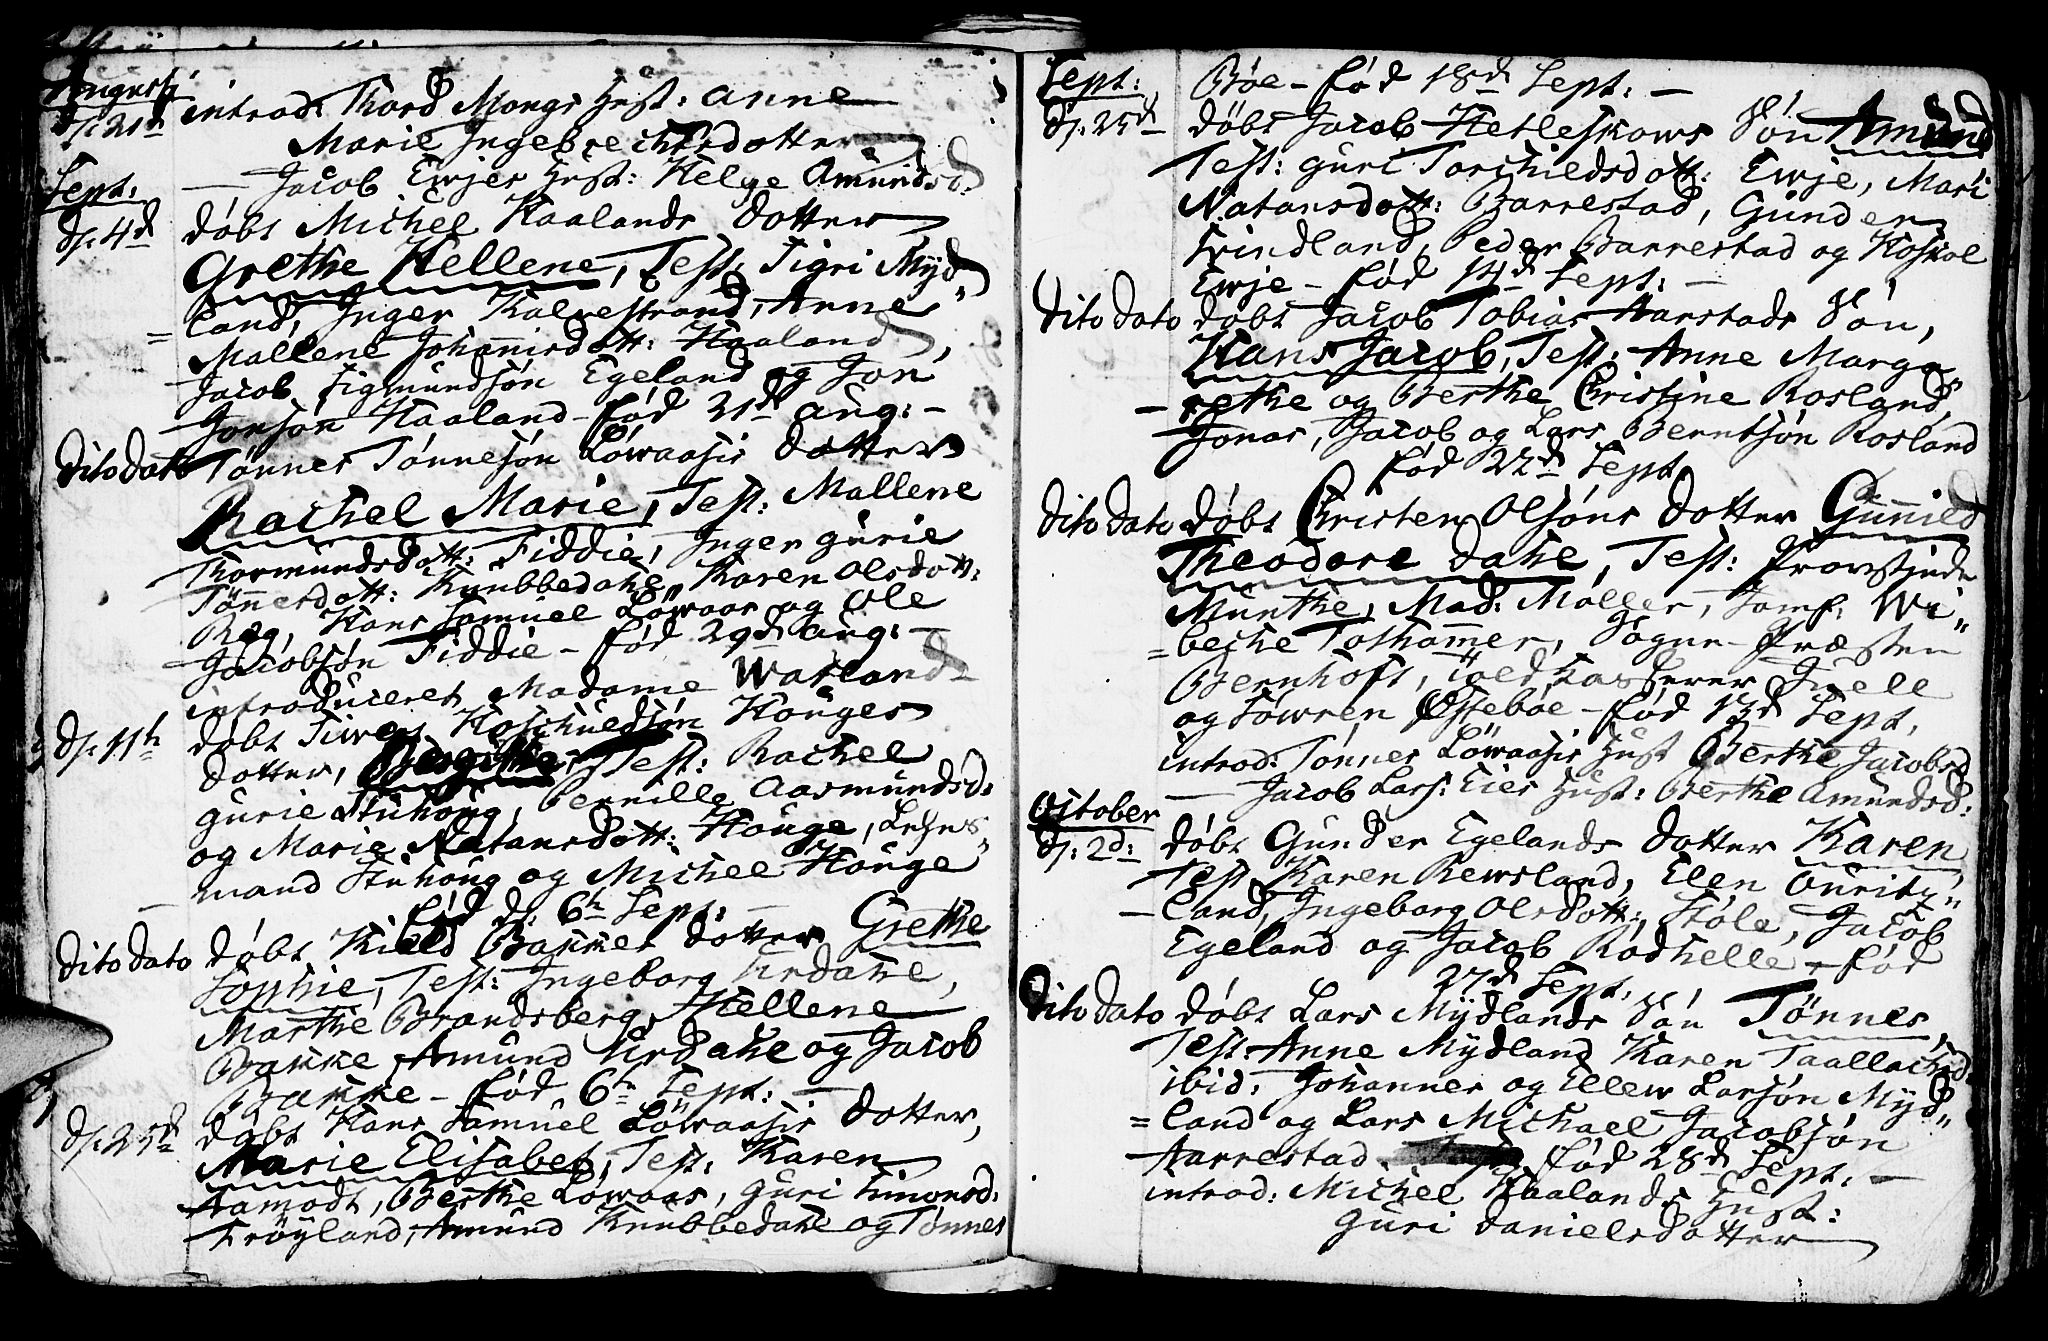 Augusti
d: 21d introd: Thord Mongs Hust: Anne
Marie Ingebrechtsdotter
Sept: — Jacob Ewjes Hust: Helge Amundsd:
d: 4d döbt Michel Haalands dotter
Grethe Hellene, Test: Sigri Myd"
=land, Inger Kalvestrand, Anne
Mallene Johannisdott: Haaland,
Jacob Sigmundsøn Egeland og Jon
Jonsøn Haaland – fød 21d Aug: –
dito dato Tønnes Tønnesøn Löwaasis dotter
Rachel Marie, Test: Mallene
Thormundsdott: Fiddie, Inger Gurie
Tönnesdott: Knubbedahl, Karen Olsdott:
Ræg, Hans Samuel Löwaas og Ole
Jacobsøn Fiddie – fød 29d Aug: –
introduceret Madame Watland
d: 11th döbt Siwert Hoschuldsøn Houges
dotter, Bergithe, Test: Rachel
Gurie Stuhoug, Pernille Aasmundsd:
og Marie Natansdott: Houge, Lehns"
– mand Stuhoug og Michel Houge
fød d: 6th Sept: –
dito dato döbt Kield Bakkes dotter Grethe
Sophie, Test: Ingeborg Urdahl,
Marthe Brandsberg, Hellene
Bakke, Amund Urdahl og Jacob
Bakke – fød 6th Sept: –
d: 25d döbt Hans Samuel Löwaasis dotter,
Marie Elisabet, Test: Karen
Aamodt, Berthe Löwaas, Guri Simonsd:
Trøyland, Amund Knubbedahl og Tønnes
Sept: Bøe – fød 18d Sept: –
d: 25d döbt Jacob Hetleskows Søn Amund
Test: Guri Torchildsdott: Ewje, Mari
Natansdott: Barrestad, Gunder
Trindland, Peder Barrestad og Hoskol
Ewje – fød 14d Sept: –
dito dato döbt Jacob Tobias Aarstads Søn,
Hans Jacob, Test: Anne Marga"
– rethe og Berthe Christine Rosland,
Jonas, Jacob og Lars Berntsøn Rosland
fød 22d Sept
dito dato döbt Christen Olsøns dotter Gunnild
Theodore Dahl, Test: Provstinde
Munthe, Mad: Møller, Jomf: Wi"
=beche Tolhammer, Sogne-Præsten
Bernhoft, Told Kasserer Juell
og Søwren Østebøe – fød 13d Sept.
introd: Tønnes Löwaasis Hust Berthe Jacobsd
— Jacob Lars: Eies Hust: Berthe Amundsd:
October
d: 2d: döbt Gunder Egelands dotter Karen,
Test Karen Rewsland, Elen Ouritz"
– land, Ingeborg Olsdott: Støle, Jacob
Egeland og Jacob Rodhelle – fød
27d Sept.
dito dato döbt Lars Mydlands Søn Tønnes,
Test: Anne Mydland Karen Taallachsd:
ibid: Johannes og Ellew Larsøn Myd"
=land og Lars Michael Jacobsøn
Aarrestad. fød 28d Sept: –
introd: Michel Haalands Hust:
Guri Danielsdotter